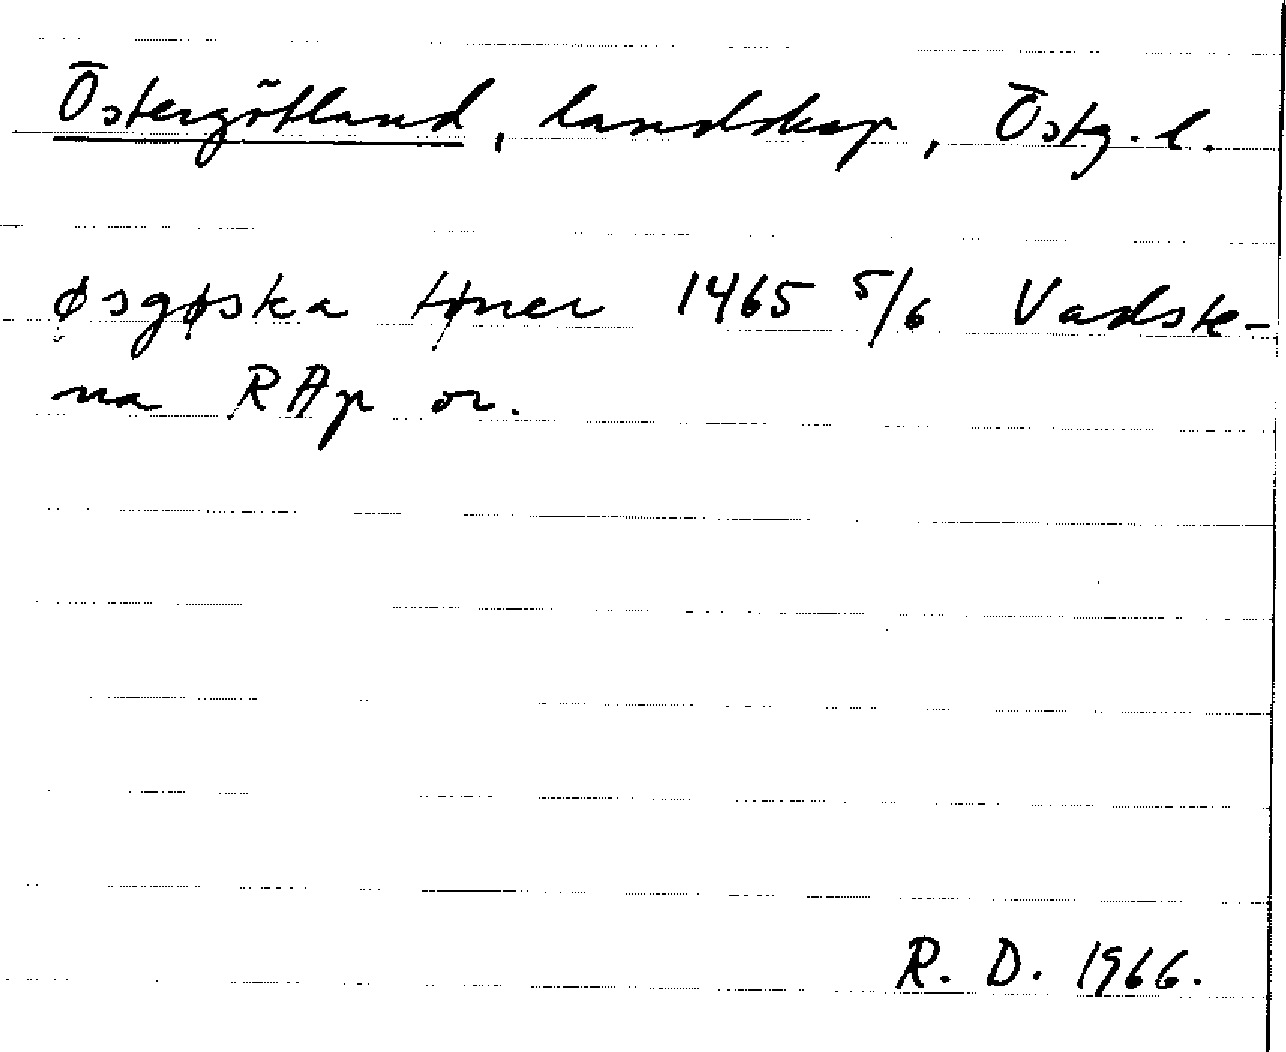 Östergötland, landskap, Östg. l.
øsgøska tøner 1465 5/6 Vadste-
na RAp or.
R. D. 1966.